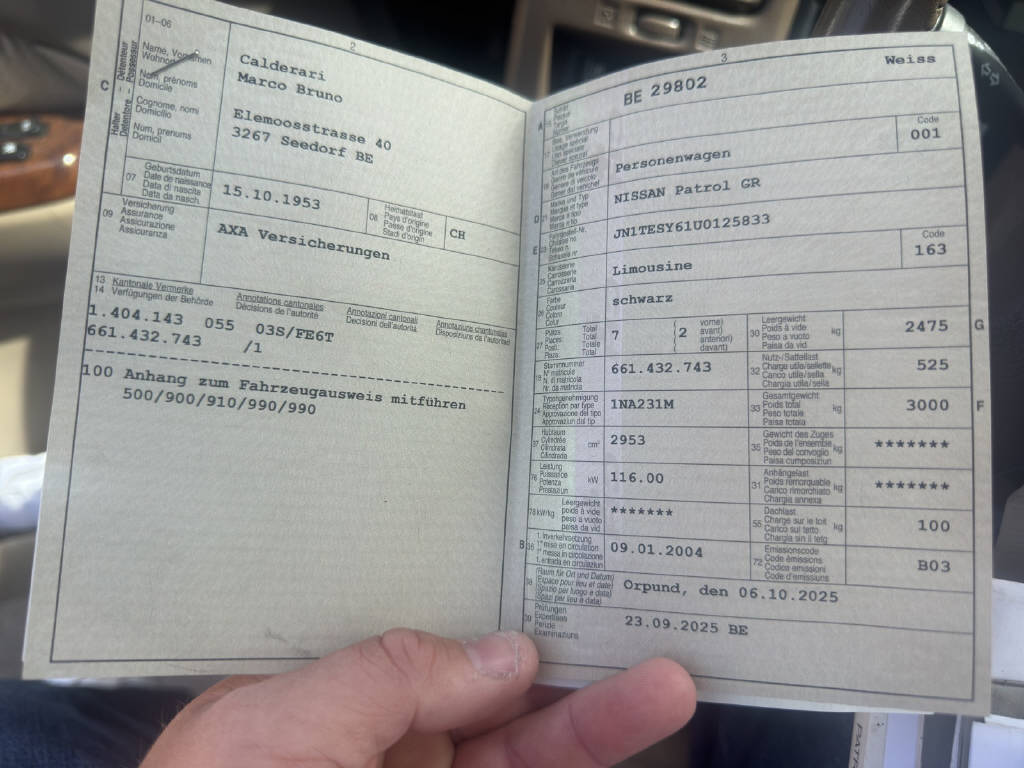 2
01-06
Name, Vornamen
Wohnort
Nom, prénoms
Domicile
Cognome, nomi
Domicilio
Num, prenums
Domicil
C
Halter Détenteur
Detentore Possessur
Calderari
Marco Bruno
Elemoosstrasse 40
3267 Seedorf BE
07
Geburtsdatum
Date de naissance
Data di nascita
Data da nasch.
15.10.1953
08
Heimatstaat
Pays d'origine
Passe d'origine
Stadi d'origin
CH
09
Versicherung
Assurance
Assicurazione
Assicuranza
AXA Versicherungen
13 Kantonale Vermerke
14 Verfügungen der Behörde
Annotations cantonales
Décisions de l'autorité
Annotazioni cantonali
Decisioni dell'autorità
Annotaziuns chantunalas
Disposiziuns da l'autoritad
1.404.143 055 03S/FE6T
661.432.743 /1
100 Anhang zum Fahrzeugausweis mitführen
500/900/910/990/990
3
Weiss
A
BE 29802
Code
001
Personenwagen
D
NISSAN Patrol GR
E
JN1TESY61U0125833
Code
163
Karosserie
Carrosserie
Carrozzeria
Carossaria
Limousine
26
Farbe
Couleur
Colore
Colur
schwarz
27
Plätze: Total
Places: Total
Posti: Totale
Plazs: Total
7
( 2 vorne)
( avant)
( anteriori)
( davant)
30
Leergewicht
Poids à vide
Peso a vuoto
Paisa da vid
kg
2475
G
18
Stammnummer
N° matricule
N. di matricola
Nr. da matricla
661.432.743
32
Nutz-/Sattellast
Charge utile/sellette
Carico utile/sella
Chargia utila/sella
kg
525
24
Typengenehmigung
Réception par type
Approvazione del tipo
Approvaziun dal tip
1NA231M
33
Gesamtgewicht
Poids total
Peso totale
Paisa totala
kg
3000
F
37
Hubraum
Cylindrée
Cilindrata
Cilindrada
cm³
2953
35
Gewicht des Zuges
Poids de l'ensemble
Peso del convoglio
Paisa cumposiziun
kg
*******
76
Leistung
Puissance
Potenza
Prestaziun
kW
116.00
31
Anhängelast
Poids remorquable
Carico rimorchiato
Chargia annexa
kg
*******
78 kW/kg
Leergewicht
poids à vide
peso a vuoto
paisa da vid
*******
55
Dachlast
Charge sur le toit
Carico sul tetto
Chargia sin il tetg
kg
100
B
36
1. Inverkehrsetzung
1re mise en circulation
1a messa in circolazione
1. entrada en circulaziun
09.01.2004
72
Emissionscode
Code émissions
Codice emissioni
Code d'emissiuns
B03
38
(Raum für Ort und Datum)
(Espace pour lieu et date)
(Spazio per luogo e data)
(Spazi per lieu e data)
Orpund, den 06.10.2025
39
Prüfungen
Expertises
Perizie
Examinaziuns
23.09.2025 BE